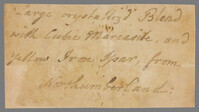 Large crystalliz'd Blend
with Cubic Marcasite, and
yellow Iron Spar, from
Northumberland.